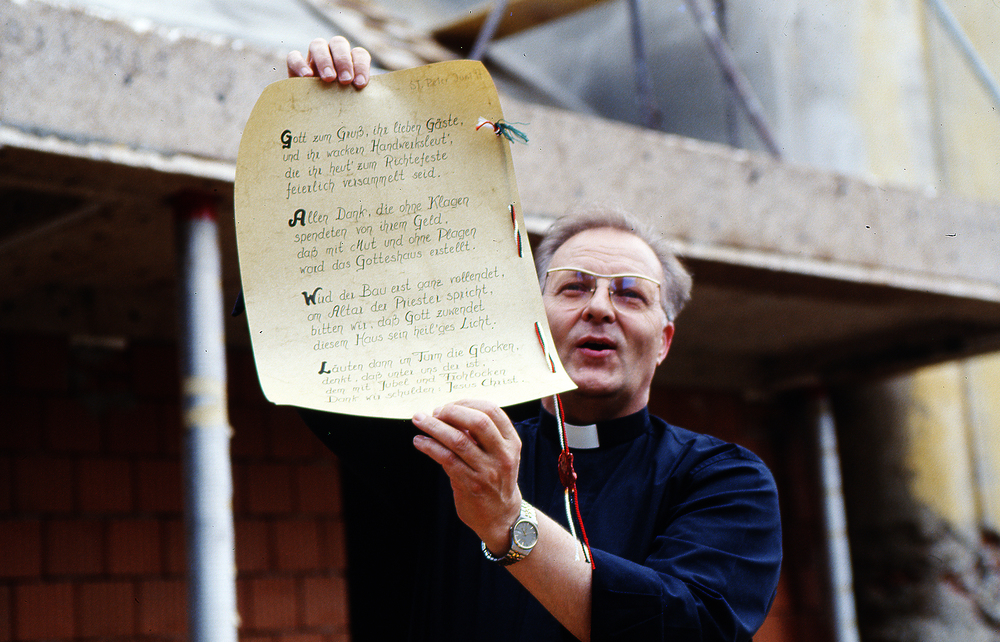 St. Peter Juni
Gott zum Gruß, ihr lieben Gäste,
und ihr wackern Handwerksleut',
die ihr heut' zum Richtefeste
feierlich versammelt seid.
Allen Dank, die ohne Klagen
spendeten von ihrem Geld,
daß mit Mut und ohne Plagen
ward das Gotteshaus erstellt.
Wird der Bau erst ganz vollendet,
am Altar der Priester spricht,
bitten wir, daß Gott zuwendet
diesem Haus sein heil'ges Licht.
Läuten dann im Turm die Glocken,
denkt, daß unter uns der ist,
dem mit Jubel und Frohlocken
Dank wir schulden: Jesus Christ.